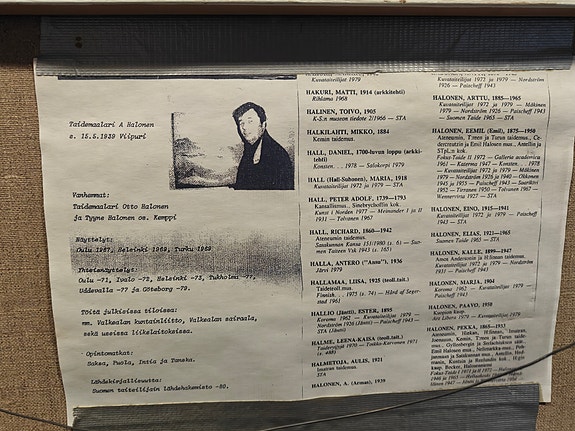 Taidemaalari A Halonen
s. 15.5.1939 Viipuri
Vanhemmat:
Taidemaalari Otto Halonen
ja Tyyne Halonen os. Kemppi
Näyttelyt:
Oulu 1967, Helsinki 1969, Turku 1969
Yhteisnäyttelyt:
Oulu -71, Ivalo -72, Helsinki -73, Tukholma -77,
Uddevalla -77 ja Göteborg -79.
Töitä julkisissa tiloissa:
mm. Valkealan kuntainliitto, Valkealan sairaala,
sekä useissa liikelaitoksissa.
Opintomatkat:
Saksa, Puola, Intia ja Tanska.
Lähdekirjallisuutta:
Suomen taiteilijain lähdehakemisto -80.
Kuvataiteilijat 1979
HAKURI, MATTI, 1914 (arkkitehti)
Riihlama 1968
HALINEN, TOIVO, 1905
K-S:n museon tiedote 2/1966 — STA
HALKILAHTI, MIKKO, 1884
Kemin taidemus.
HALL, DANIEL, 1700-luvun loppu (arkki-
tehti)
Konsten... 1978 — Salokorpi 1979
HALL (Hall-Suhonen), MARIA, 1918
Kuvataiteilijat 1972 — STA
HALL, PETER ADOLF, 1739—1793
Kansallismus., Sinebrychoffin kok.
Kunst i Norden 1977 — Meinander I ja II
1931 — Tolvanen 1967
HALL, RICHARD, 1860—1942
Ateneumin taidemus.
Sanskunnan Kansa 153/1980 (s. 6) — Suo-
men Taiteen Vsk 1945 (s. 165)
HALLA, ANTERO ("Anno"), 1936
Järvi 1979
HALLAMAA, LIISA, 1925 (teoll.tait.)
Taideteoll.mus.
Finnish... 1975 (s. 74) — Hård af Seger-
stad 1961
HALLIO (Jäntti), ESTER, 1895
Koroma 1962 — Kuvataiteilijat 1979 —
Nordström 1926 (Jäntti) — Paischeff 1943 —
STA (Jäntti)
HALME, LEENA-KAISA (teoll.tait.)
Taidervijssit 1970 — Toikka-Karvonen 1971
(s. 488)
HALMETOJA, AULIS, 1921
Imatran taidemus.
STA
HALONEN, A. (Armas), 1939
Kuvataiteilijat 1972 ja 1979 — Nordström
1926 — Paischeff 1943
HALONEN, ARTTU, 1885—1965
Kuvataiteilijat 1972 ja 1979 — Mäkinen
1979 — Nordström 1926 — Paischeff 1943
— Suomen Taide 1963 — STA
HALONEN, EEMIL (Emil), 1875—1950
Ateneumin, T:reen ja Turun taidemus., Ce-
dercreutzin ja Emil Halonen mus., Antellin ja
STpL:n kok.
Fokus-Taide II 1972 — Galleria academica
1961 — Katerma 1947 — Konsten... 1978
— Kuvataiteilijat 1972 ja 1979 — Mäkinen
1979 — Nordström 1926 ja 1940 — Okkonen
1945 ja 1955 — Paischeff 1943 — Saarikivi
1952 — Tirranen 1950 — Tolvanen 1967 —
Wennervirta 1927 — STA
HALONEN, EINO, 1915—1941
Kuvataiteilijat 1972 ja 1979 — Paischeff
1943 — STA
HALONEN, ELIAS, 1921—1965
Suomen Taide 1965 — STA
HALONEN, KALLE, 1899—1947
Amos Andersonin ja H:linnan taidemus.
Kuvataiteilijat 1972 ja 1979 — Nordström
1931 — Paischeff 1943 — STA
HALONEN, MARIA, 1904
Koroma 1962 — Kuvataiteilijat 1972 ja
1979 — Paischeff 1943
HALONEN, PAAVO, 1950
Kuopion kaup.
Ars Libera 1979 — Kuvataiteilijat 1979
HALONEN, PEKKA, 1865—1933
Ateneumin, Hiekan, H:linnan, Imatran,
Joensuun, Kemin, T:reen ja Turun taide-